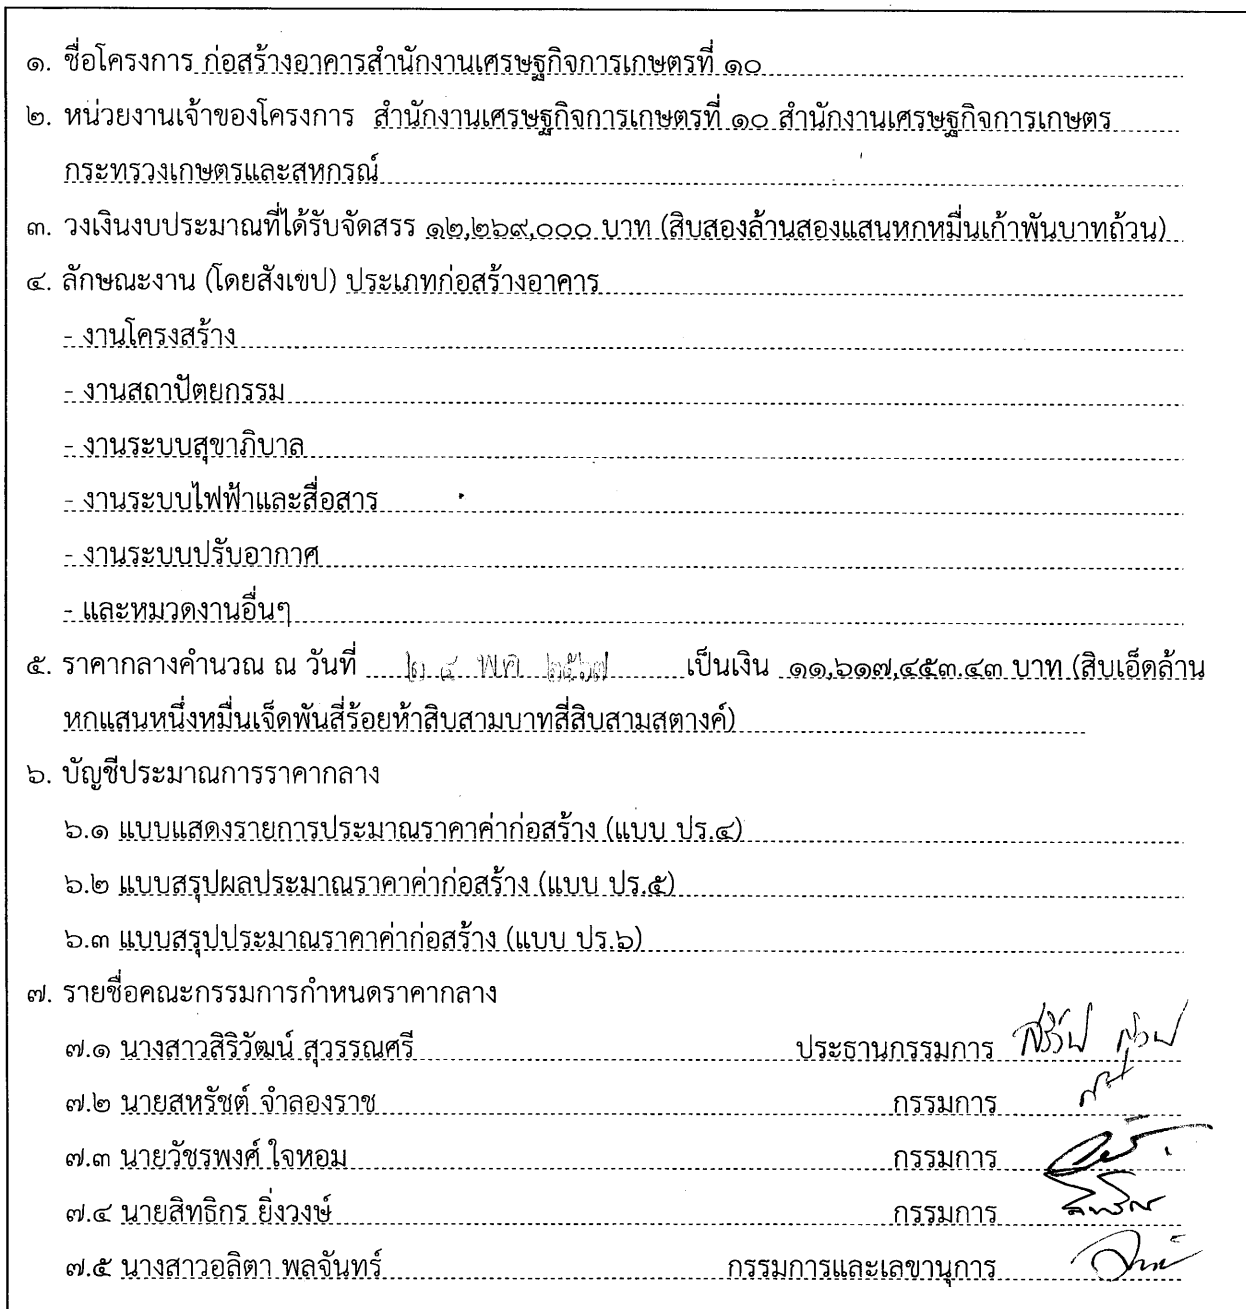 ๑. ชื่อโครงการ ก่อสร้างอาคารสำนักงานเศรษฐกิจการเกษตรที่ ๑๐
๒. หน่วยงานเจ้าของโครงการ สำนักงานเศรษฐกิจการเกษตรที่ ๑๐ สำนักงานเศรษฐกิจการเกษตร
กระทรวงเกษตรและสหกรณ์
๓. วงเงินงบประมาณที่ได้รับจัดสรร ๑๒,๒๖๙,๐๐๐ บาท (สิบสองล้านสองแสนหกหมื่นเก้าพันบาทถ้วน)
๔. ลักษณะงาน (โดยสังเขป) ประเภทก่อสร้างอาคาร
- งานโครงสร้าง
- งานสถาปัตยกรรม
- งานระบบสุขาภิบาล
- งานระบบไฟฟ้าและสื่อสาร
- งานระบบปรับอากาศ
- และหมวดงานอื่นๆ
๕. ราคากลางคำนวณ ณ วันที่ ๒๔ พ.ค. ๒๕๖๗ เป็นเงิน ๑๑,๖๑๗,๔๕๓.๔๓ บาท (สิบเอ็ดล้าน
หกแสนหนึ่งหมื่นเจ็ดพันสี่ร้อยห้าสิบสามบาทสี่สิบสามสตางค์)
๖. บัญชีประมาณการราคากลาง
๖.๑ แบบแสดงรายการประมาณราคาค่าก่อสร้าง (แบบ ปร.๔)
๖.๒ แบบสรุปผลประมาณราคาค่าก่อสร้าง (แบบ ปร.๕)
๖.๓ แบบสรุปประมาณราคาค่าก่อสร้าง (แบบ ปร.๖)
๗. รายชื่อคณะกรรมการกำหนดราคากลาง
๗.๑ นางสาวสิริวัฒน์ สุวรรณศรี ประธานกรรมการ
๗.๒ นายสหรัชต์ จำลองราช กรรมการ
๗.๓ นายวัชรพงศ์ ใจหอม กรรมการ
๗.๔ นายสิทธิกร ยิ่งวงษ์ กรรมการ
๗.๕ นางสาวอลิตา พลจันทร์ กรรมการและเลขานุการ